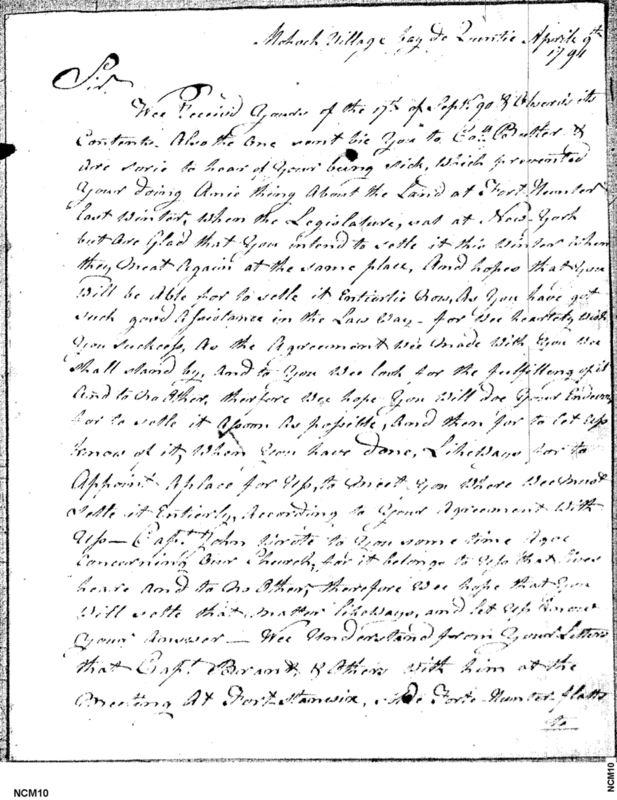 Mohock Village Bay De Quntie Aprile 9th
1794
Sir
Wee Receivd Yours of the 17th of Sept. 90 & Observ'd its
Contents. Also the One sent bie You to Capt. Butler &
Are sorie to hear of Your being sick, Which prevented
Your doing Anie thing About the Land at Fort Hunter
last Winter, When the Legislature, sat at New-York
but Are Glad that You intend to settle it this Winter When
they Meat Again at the same place, And hopes that You
Will be Able for to settle it Entierlie Now, As You have got
such good Assistance in the Law Way - for Wee heartely Wish
You suckcess, As the Agreement Wee Made With You Wee
shall stand by, And to You Wee look for the fulfilling of it
And to No Other, therefore Wee hope You Will doe Your Endevor
for to settle it As soon As possible, And then for to let Uss
know of it, When You have done, Likeways for to
Appoint A place for Uss, to Meet You Where Wee Must
settle it Entierly, According to Your Agreement With
Uss - Capt. John Wrote to You some time Agoe
Concerning Our Church, for it belongs to Uss that lives
heare And to No Other, therefore Wee hope that You
Will settle that Matter likeways, and let Uss know
Your Answer - Wee Understand from Your Letters
that Capt. Brant & Others With him at the
Meeting At Fort Stanwix, Forte Hunter flatts
to
NCM10
NCM10